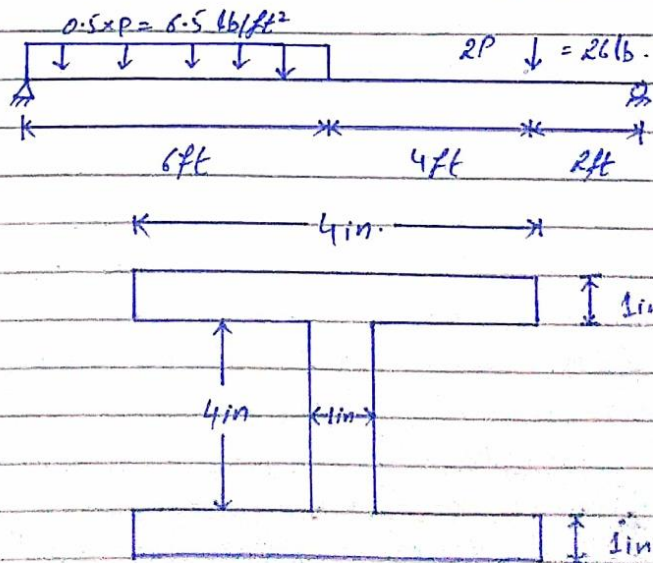 0.5×P = 6.5 lb/ft²
2P ↓ = 26lb.
6ft 4ft 2ft
4in.
1in
4in 1in
1in